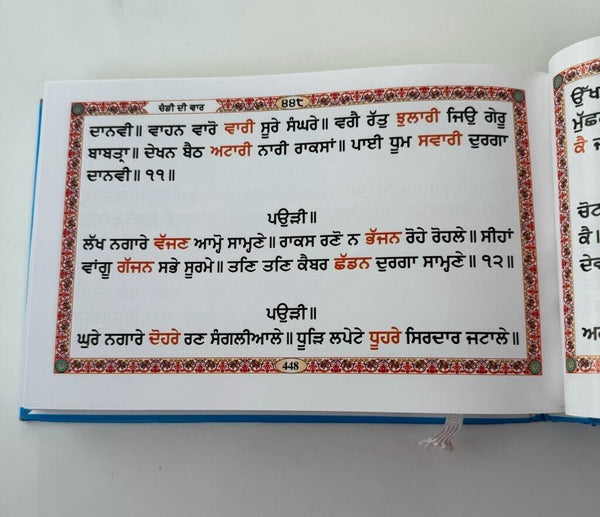 ਚੰਡੀ ਦੀ ਵਾਰ
੪੪੮
ਦਾਨਵੀ॥ ਵਾਹਨ ਵਾਰੋ ਵਾਰੀ ਸੂਰੇ ਸੰਘਰੇ॥ ਵਗੈ ਰੱਤੁ ਝੁਲਾਰੀ ਜਿਉ ਗੇਰੂ
ਬਾਬਤ੍ਰਾ॥ ਦੇਖਨ ਬੈਠ ਅਟਾਰੀ ਨਾਰੀ ਰਾਕਸਾਂ॥ ਪਾਈ ਧੂਮ ਸਵਾਰੀ ਦੁਰਗਾ
ਦਾਨਵੀ॥੧੧॥
ਪਉੜੀ॥
ਲੱਖ ਨਗਾਰੇ ਵੱਜਣ ਆਮ੍ਹੋ ਸਾਮ੍ਹਣੇ॥ ਰਾਕਸ ਰਣੋ ਨ ਭੱਜਨ ਰੋਹੇ ਰੋਹਲੇ॥ ਸੀਹਾਂ
ਵਾਂਗੂ ਗੱਜਨ ਸਭੇ ਸੂਰਮੇ॥ ਤਣਿ ਤਣਿ ਕੈਬਰ ਛੱਡਨ ਦੁਰਗਾ ਸਾਮ੍ਹਣੇ॥੧੨॥
ਪਉੜੀ॥
ਘੁਰੇ ਨਗਾਰੇ ਦੋਹਰੇ ਰਣ ਸੰਗਲੀਆਲੇ॥ ਧੂੜਿ ਲਪੇਟੇ ਧੂਹਰੇ ਸਿਰਦਾਰ ਜਟਾਲੇ॥
448
ਕੈ
ਚੋਟ
ਕੈ।